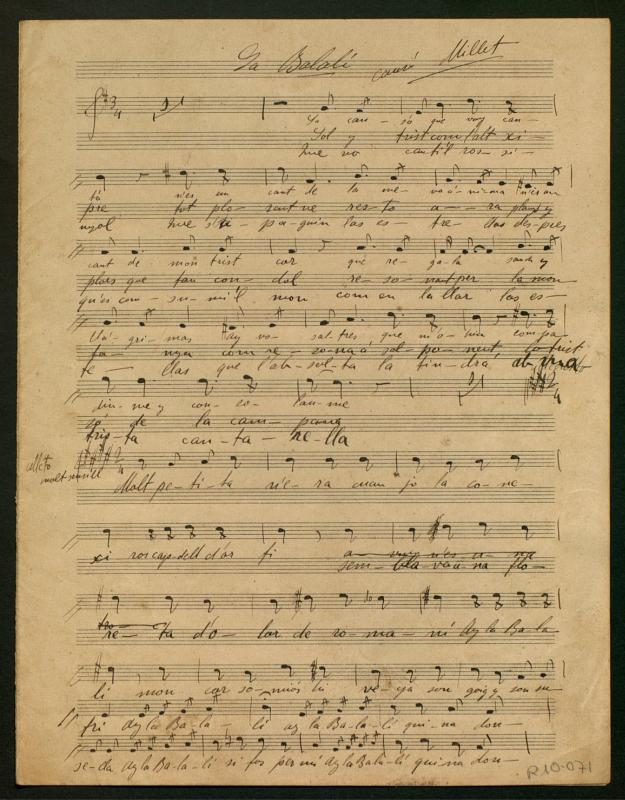 La Balalí
cançó Millet
La can- só que vuy can-
Sol y trist com l'alt xi-
Que no cantil ros- si-
tá n'es un cant de la me- va á- nima n'es un
pre tot plo- rant ne res- to a- ra plany y
nyol que s'a- pa- guin las es- tre- llas des-pres
cant de mon trist cor que re- ga- la sanch y
plors que fan con- dol re- so- nant per la mon
qu'es con- su- mi'l mon com en la llar las es-
Llá- gri- mas dy vo- sal-tres que m'ò- hiu com pa-
ta- nya com re- so-na á sol- po- nent trist
te- llas que l'ab- sol- ta la tin-drá ab
diu- me y con- so- lau-me
só de la cam- pana
tris- ta can- ta- re-lla
Alltto
molt senzill
Molt pe- ti- ta n'e- ra cuan jo la co- ne-
xi ros caps dell d'or fi
sem- bla- va u- na flo-
re- ta d'o- lor de ro- ma- ní Ay la Ba- la
li mon cor so- miós hi ve- ya son goig y son su
fri Ay la Ba- la- li ay la Ba- la- li qui-na don-
se-da Ay la Ba-la-li si fos per mi Ay la Bala-li quina don-
R10-071